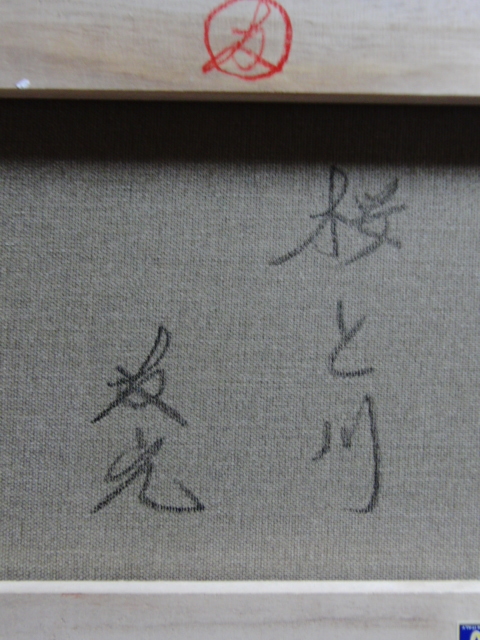 桜と川
友光